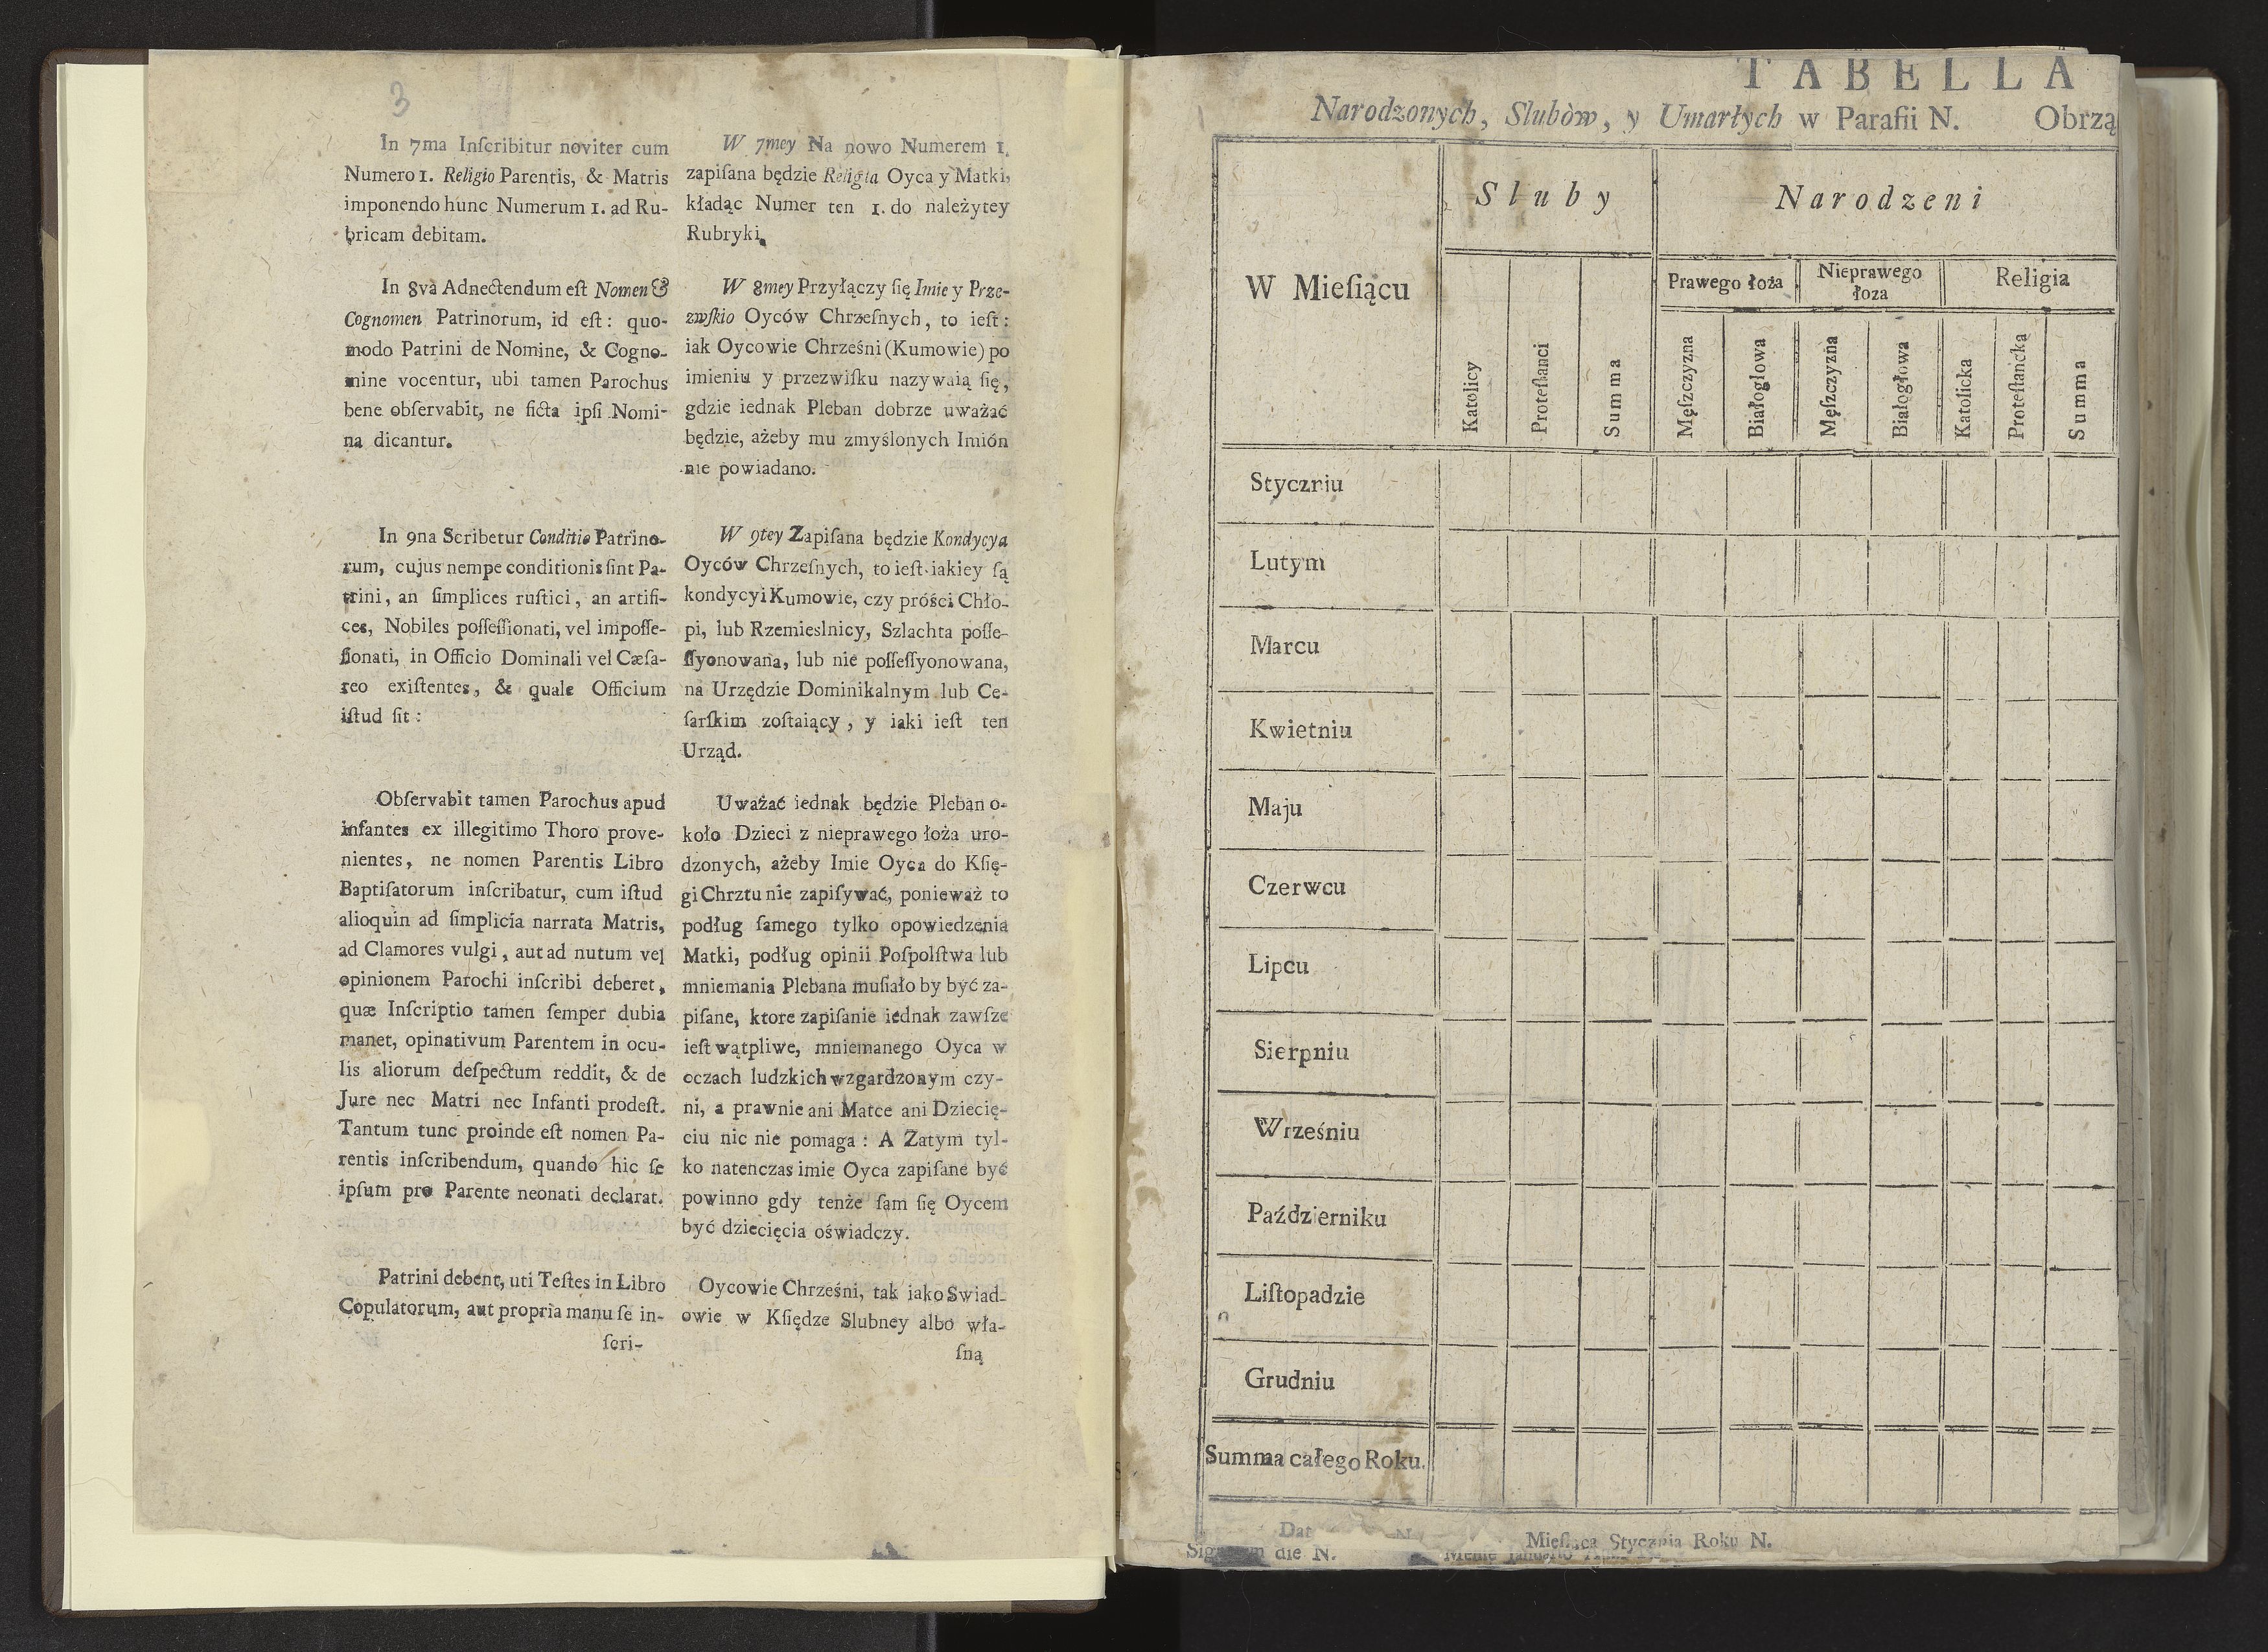 3
In 7ma Inſcribitur noviter cum
Numero 1. Religio Parentis, & Matris
imponendo hunc Numerum 1. ad Ru-
bricam debitam.
In 8va Adnectendum eſt Nomen &
Cognomen Patrinorum, id eſt: quo-
modo Patrini de Nomine, & Cogno-
mine vocentur, ubi tamen Parochus
bene obſervabit, ne ficta ipſi Nomi-
na dicantur.
In 9na Scribetur Conditio Patrino-
rum, cujus nempe conditionis ſint Pa-
trini, an ſimplices ruſtici, an artifi-
ces, Nobiles poſſeſſionati, vel impoſſe-
ſionati, in Officio Dominali vel Cæſa-
reo exiſtentes, & quale Officium
iſtud ſit:
Obſervabit tamen Parochus apud
infantes ex illegitimo Thoro prove-
nientes, ne nomen Parentis Libro
Baptiſatorum inſcribatur, cum iſtud
alioquin ad ſimplicia narrata Matris,
ad Clamores vulgi, aut ad nutum vel
opinionem Parochi inſcribi deberet,
quæ Inſcriptio tamen ſemper dubia
manet, opinativum Parentem in ocu-
lis aliorum deſpectum reddit, & de
Jure nec Matri nec Infanti prodeſt.
Tantum tunc proinde eſt nomen Pa-
rentis inſcribendum, quando hic ſe
ipſum pro Parente neonati declarat.
Patrini debent, uti Teſtes in Libro
Copulatorum, aut propria manu ſe in-
ſcri-
W 7mey Na nowo Numerem 1.
zapiſana będzie Religia Oyca y Matki,
kładąc Numer ten 1. do należytey
Rubryki.
W 8mey Przyłączy ſię Imie y Prze-
zwſkio Oyców Chrzeſnych, to ieſt:
iak Oycowie Chrześni (Kumowie) po
imieniu y przezwiſku nazywaią ſię,
gdzie iednak Pleban dobrze uważać
będzie, ażeby mu zmyślonych Imión
nie powiadano.
W 9tey Zapiſana będzie Kondycya
Oyców Chrzeſnych, to ieſt iakiey ſą
kondycyi Kumowie, czy próści Chło-
pi, lub Rzemieslnicy, Szlachta poſſe-
ſſyonowana, lub nie poſſeſſyonowana,
na Urzędzie Dominikalnym lub Ce-
ſarſkim zoſtaiący, y iaki ieſt ten
Urząd.
Uważać iednak będzie Pleban o-
koło Dzieci z nieprawego łoża uro-
dzonych, ażeby Imie Oyca do Kſię-
gi Chrztu nie zapiſywać, ponieważ to
podług ſamego tylko opowiedzenia
Matki, podług opinii Poſpolſtwa lub
mniemania Plebana muſiało by być za-
piſane, ktore zapiſanie iednak zawſze
ieſt wątpliwe, mniemanego Oyca w
oczach ludzkich wzgardzonym czy-
ni, a prawnie ani Matce ani Dziecię-
ciu nic nie pomaga: A Zatym tyl-
ko natenczas imie Oyca zapiſane być
powinno gdy tenże ſam ſię Oycem
być dziecięcia oświadczy.
Oycowie Chrześni, tak iako Swiad-
owie w Kſiędze Slubney albo wła-
ſną
TABELLA
Narodzonych, Slubòw, y Umarłych w Parafii N. Obrzą
W Mieſiącu
Sluby
Narodzeni
Prawego łoża
Nieprawego
łoza
Religia
Katolicy
Proteſtanci
Summa
Męſzczyzna
Białoglowa
Męſzczyzna
Białogłowa
Katolicka
Proteſtancka
Summa
Styczniu
Lutym
Marcu
Kwietniu
Maju
Czerwcu
Lipcu
Sierpniu
Wrześniu
Październiku
Liſtopadzie
Grudniu
Summa całego Roku.
Dat N. Mieſiąca Stycznia Roku N.
die N.